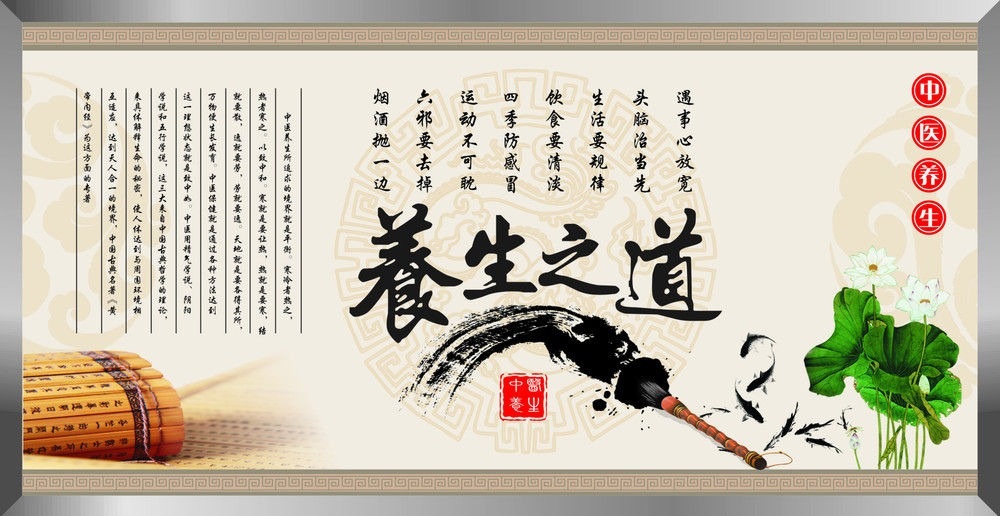 中医养生
遇事心放宽
头脑治当先
生活要规律
饮食要清淡
四季防感冒
运动不可耽
六邪要去掉
烟酒抛一边
養生之道
中醫
養生
中医养生所追求的境界就是平衡。寒冷者热之，
热者寒之。以致中和。寒就是要让热，热就是要寒，结
就要散，逸就要劳，劳就要逸。天地就是要各得其所，
万物便生长发育。中医保健就是通过各种方法达到
这一理想状态就是致中和。中医用精气学说、阴阳
学说和五行学说，这三大来自中国古典哲学的理论，
来具体解释生命的秘密，使人体达到与周围环境相
互适应，达到天人合一的境界，中国古典名著《黄
帝内经》为这方面的专著